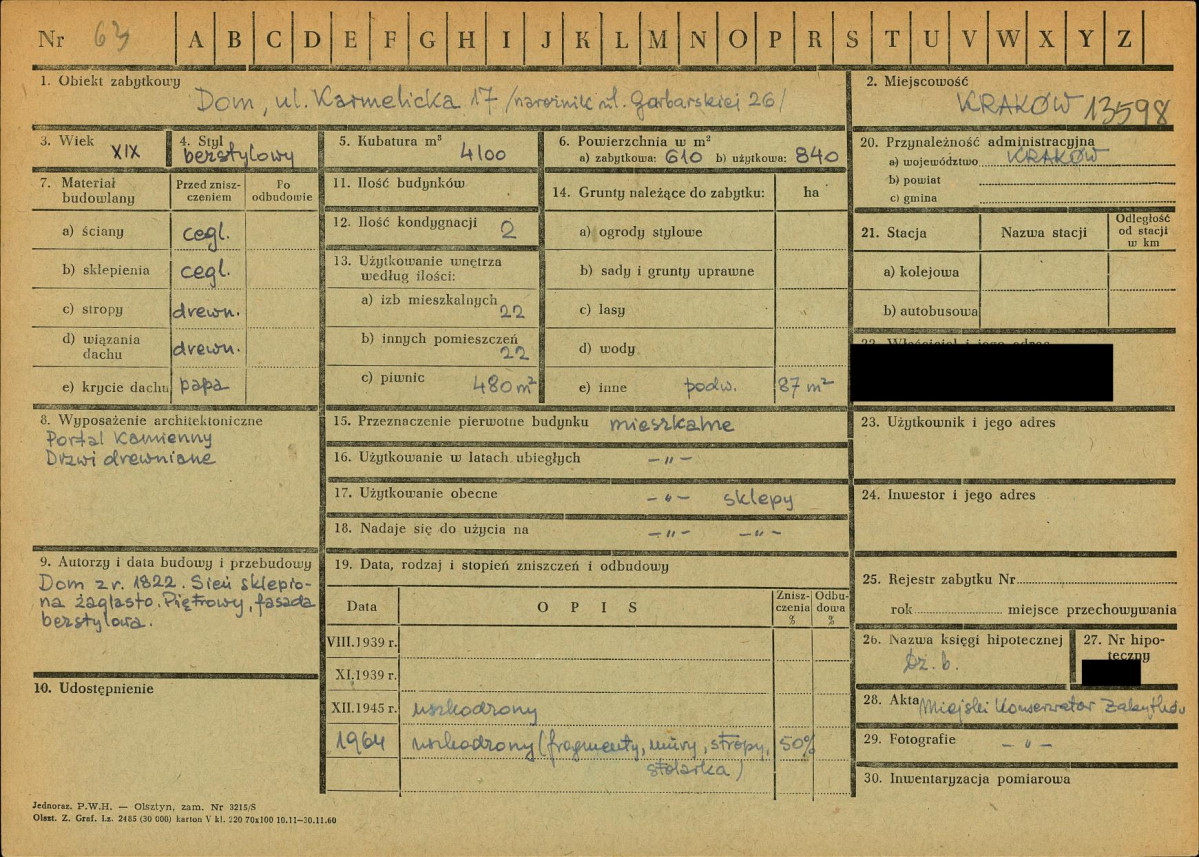 Nr 63 A B C D E F G H I J K L M N O P R S T U V W X Y Z
1. Obiekt zabytkowy
Dom, ul. Karmelicka 17 /narożnik ul. Garbarskiej 26/
2. Miejscowość
KRAKÓW 13598
3. Wiek XIX
4. Styl
bezstylowy
5. Kubatura m³
4100
6. Powierzchnia w m²
a) zabytkowa: 610 b) użytkowa: 840
7. Materiał budowlany
Przed zniszczeniem
Po odbudowie
a) ściany cegl.
b) sklepienia cegl.
c) stropy drewn.
d) wiązania dachu drewn.
e) krycie dachu papa
8. Wyposażenie architektoniczne
Portal Kamienny
Drzwi drewniane
9. Autorzy i data budowy i przebudowy
Dom z r. 1822. Sień sklepio-
na żaglasto. Piętrowy, fasada
bezstylowa.
10. Udostępnienie
11. Ilość budynków
12. Ilość kondygnacji 2
13. Użytkowanie wnętrza
według ilości:
a) izb mieszkalnych 22
b) innych pomieszczeń 22
c) piwnic 480 m²
14. Grunty należące do zabytku: ha
a) ogrody stylowe
b) sady i grunty uprawne
c) lasy
d) wody
e) inne podw. 87 m²
15. Przeznaczenie pierwotne budynku mieszkalne
16. Użytkowanie w latach ubiegłych –„–
17. Użytkowanie obecne –„– sklepy
18. Nadaje się do użycia na –„– –„–
19. Data, rodzaj i stopień zniszczeń i odbudowy
Data OPIS Znisz-
czenia
% Odbu-
dowa
%
VIII.1939 r.
XI.1939 r.
XII.1945 r. uszkodzony
1964 uszkodzony (fragmenty, mury, stropy, 50%
stolarka)
20. Przynależność administracyjna
a) województwo KRAKÓW
b) powiat
c) gmina
21. Stacja Nazwa stacji Odległość
od stacji
w km
a) kolejowa
b) autobusowa
22. Właściciel i jego adres
23. Użytkownik i jego adres
24. Inwestor i jego adres
25. Rejestr zabytku Nr
rok miejsce przechowywania
26. Nazwa księgi hipotecznej
Dz. b.
27. Nr hipo-
teczny
28. Akta Miejski Konserwator Zabytków
29. Fotografie –„–
30. Inwentaryzacja pomiarowa
Jednoraz. P.W.H. — Olsztyn, zam. Nr 3215/S
Olszt. Z. Graf. Lz. 2485 (30 000) karton V kl. 220 70x100 10.11—30.11.60